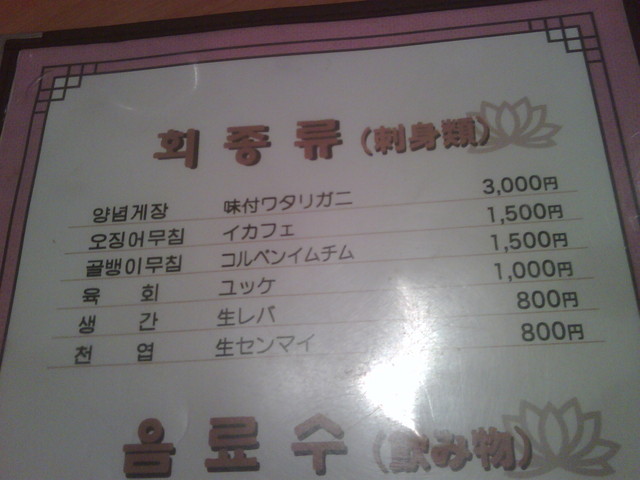 회종류(刺身類)
양념게장 味付ワタリガニ 3,000円
오징어무침 イカフェ 1,500円
골뱅이무침 コルベンイムチム 1,500円
육회 ユッケ 1,000円
생간 生レバ 800円
천엽 生センマイ 800円
음료수(飲み物)